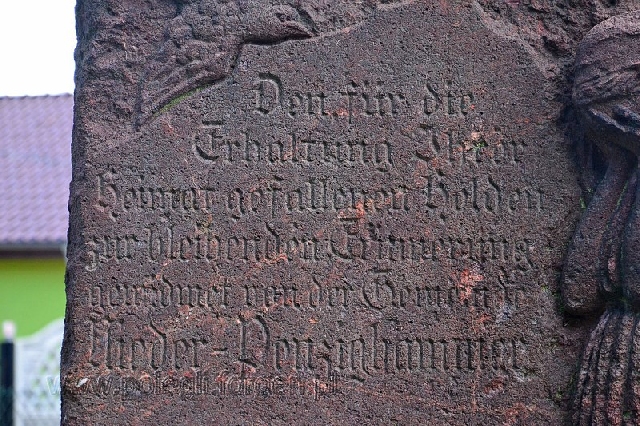 Den für die
Erhaltung Ihrer
Heimat gefallenen Helden
zur bleibenden Erinnerung
gewidmet von der Gemeinde
Nieder-Penzighammer